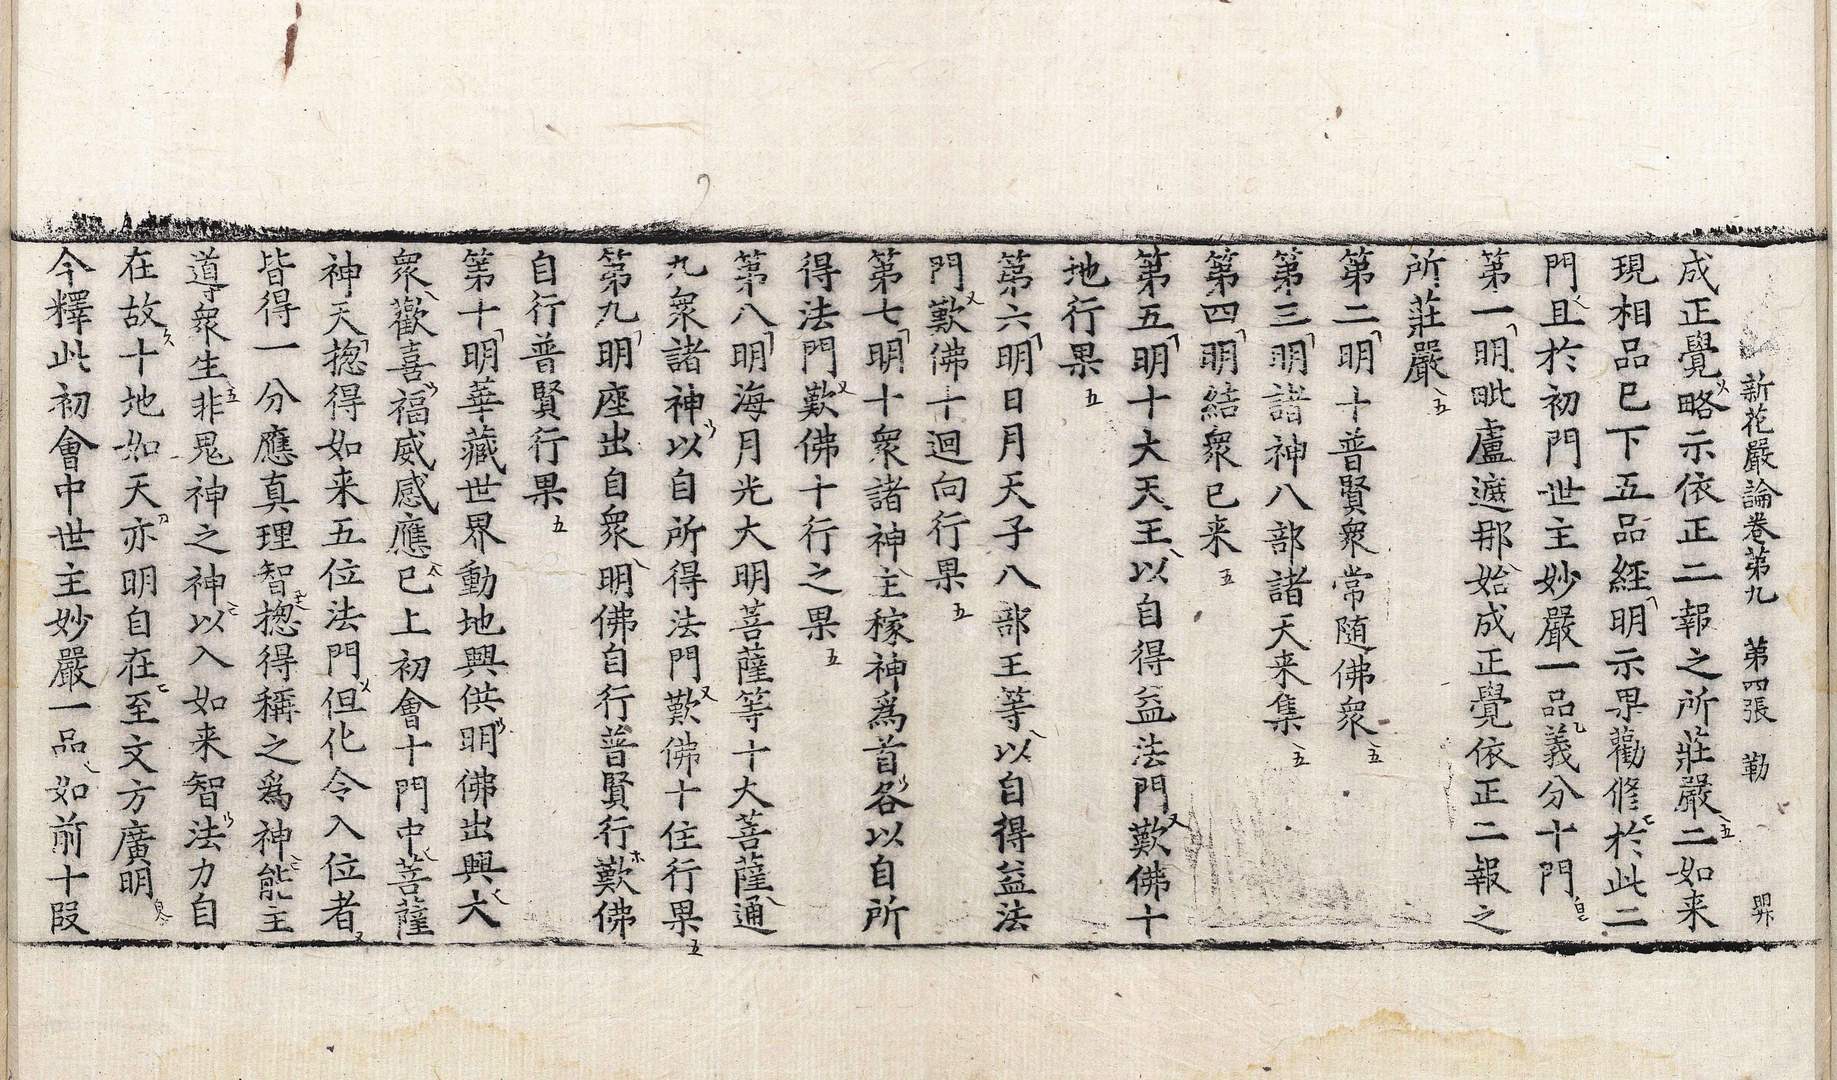 新花嚴論卷第九　第四張　勒
成正覺略示依正二報之所莊嚴二如来
現相品已下五品經明示果勸修於此二
門且於初門世主妙嚴一品義分十門
第一明毗盧遮那始成正覺依正二報之
所莊嚴
第二明十普賢衆常隨佛衆
第三明諸神八部諸天来集
第四明結衆已来
第五明十大天王以自得益法門歎佛十
地行果
第六明日月天子八部王等以自得益法
門歎佛十迴向行果
第七明十衆諸神主稼神爲首各以自所
得法門歎佛十行之果
第八明海月光大明菩薩等十大菩薩通
九衆諸神以自所得法門歎佛十住行果
第九明座出自衆明佛自行普賢行歎佛
自行普賢行果
第十明華藏世界動地興供明佛出興大
衆歡喜福威感應已上初會十門中菩薩
神天揔得如来五位法門但化令入位者
皆得一分應真理智揔得稱之爲神能主
導衆生非鬼神之神以入如来智法力自
在故十地如天亦明自在至文方廣明
今釋此初會中世主妙嚴一品如前十段